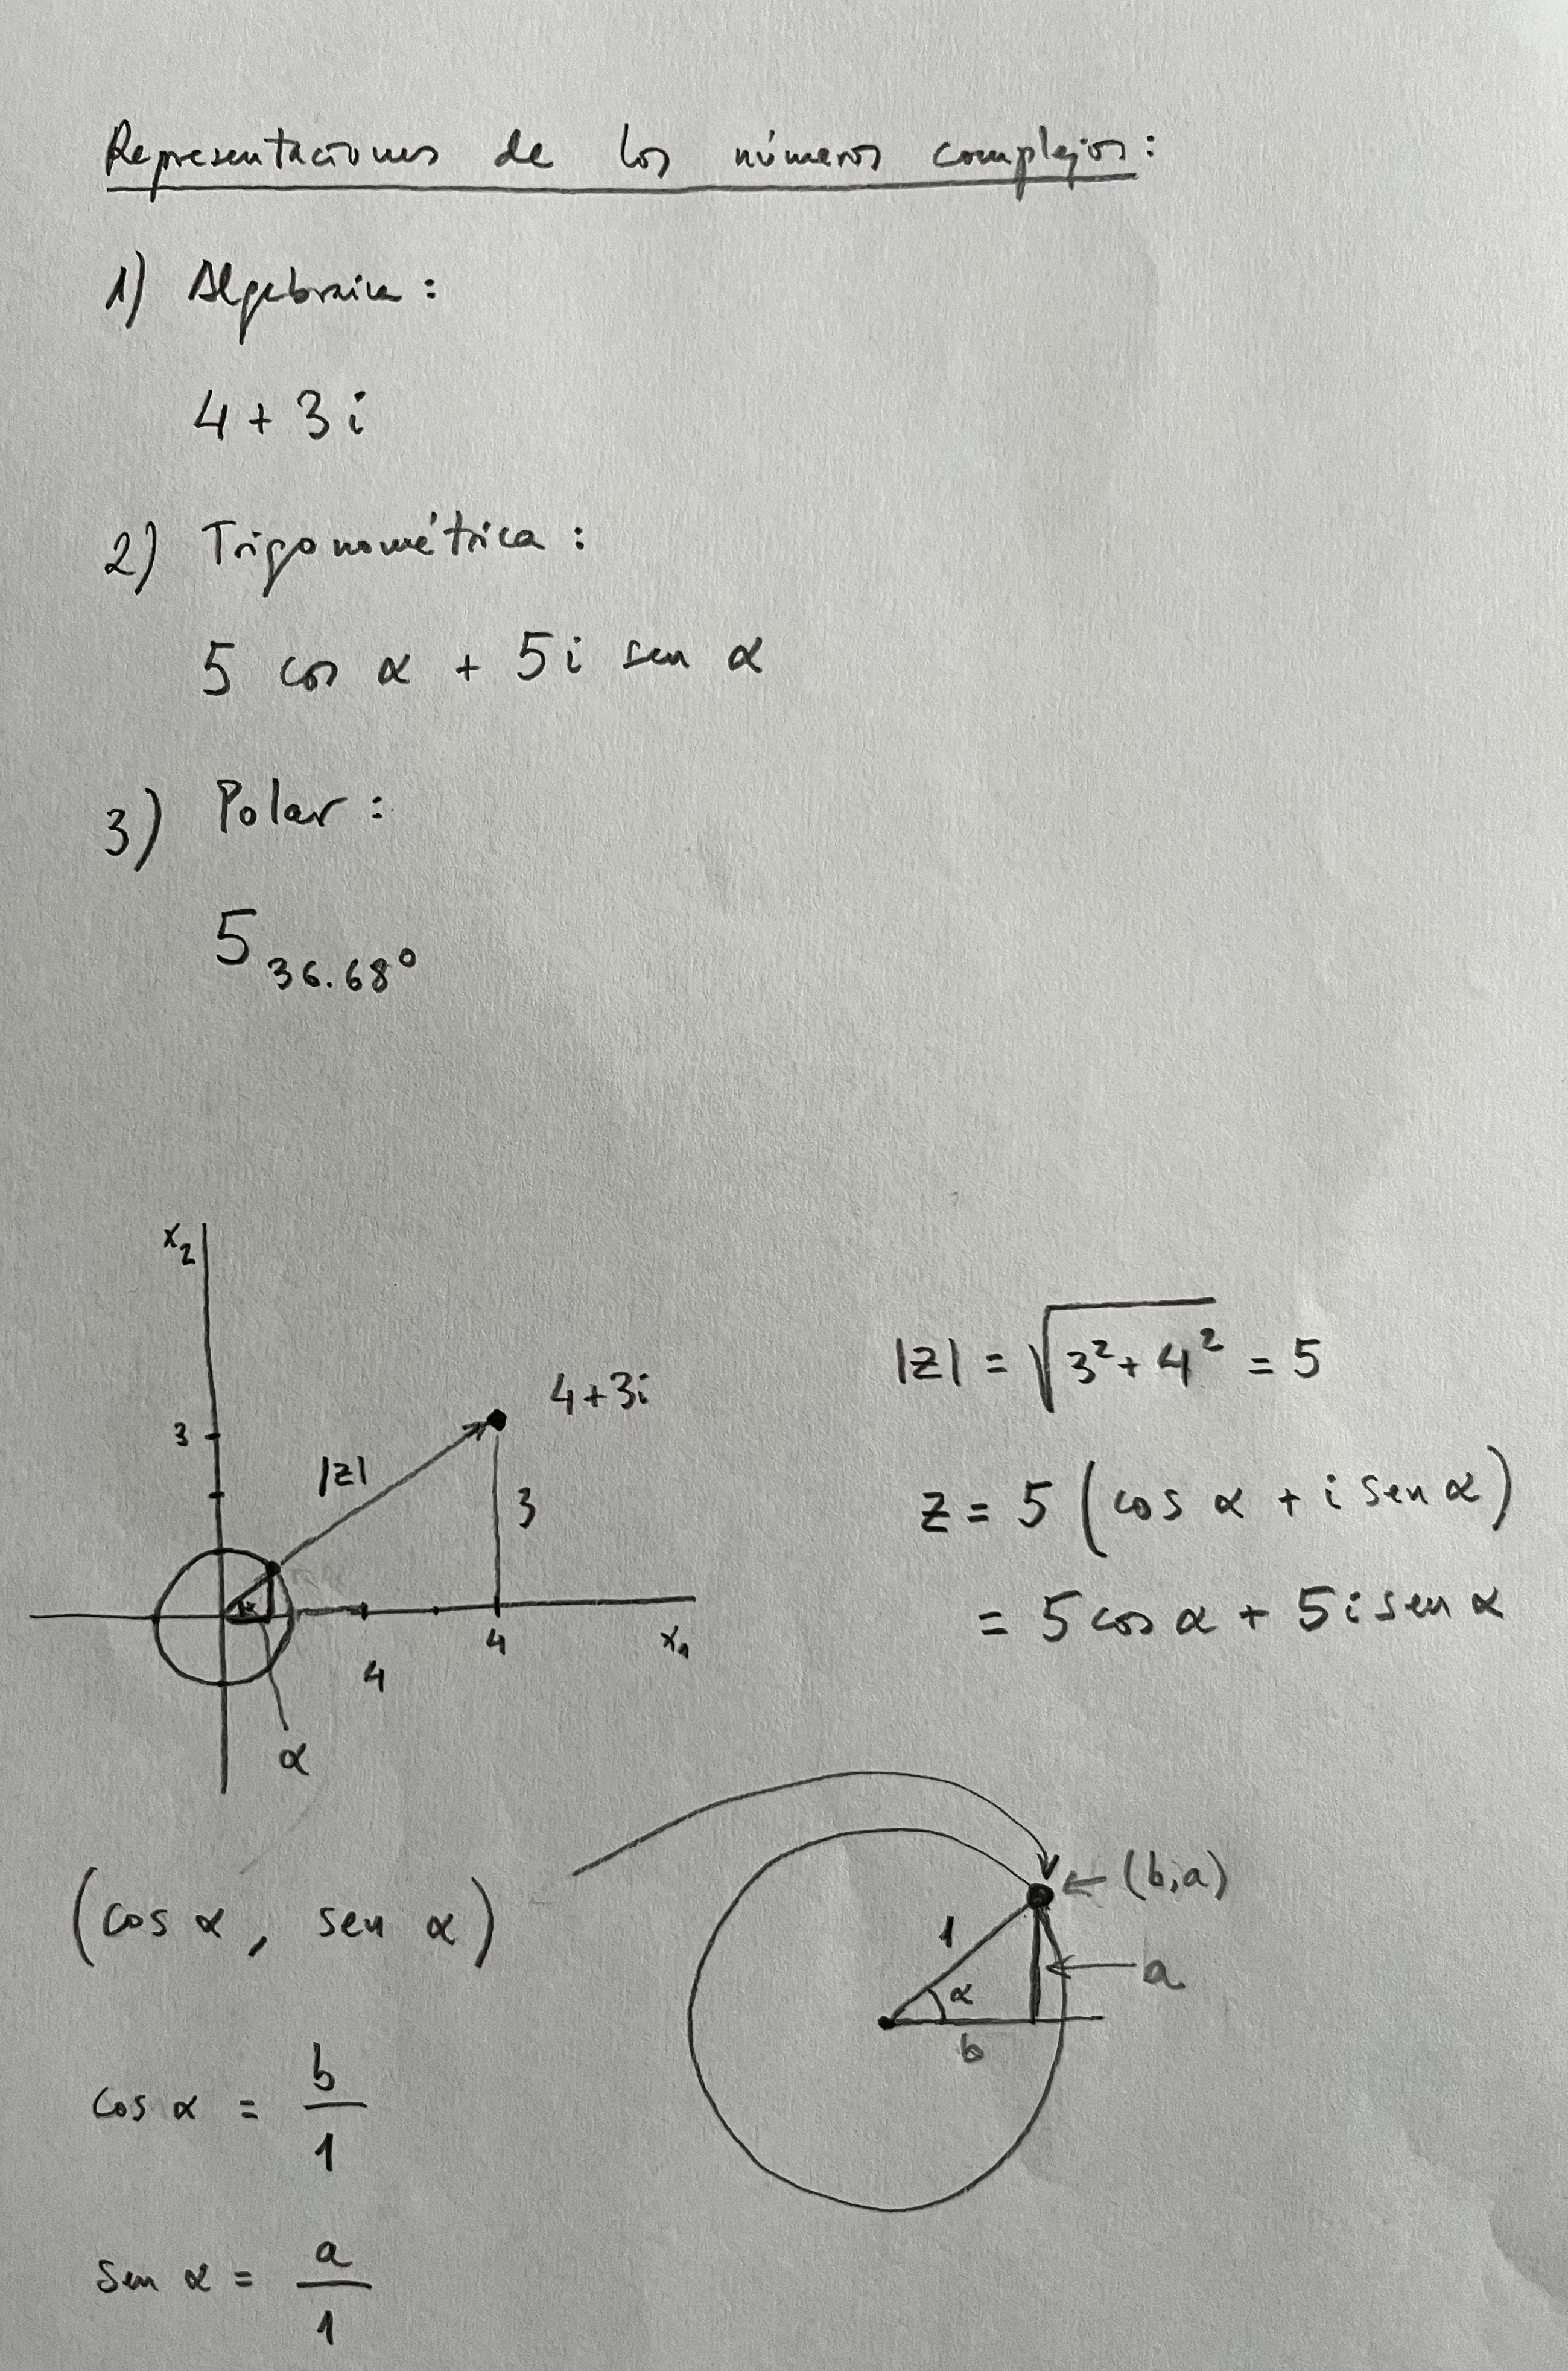 Representaciones de los números complejos:
1) Algebraica:
4 + 3i
2) Trigonométrica:
5 cos α + 5i sen α
3) Polar:
5 36.68°
x₂
3
|z|
4+3i
3
4
4
x₁
α
|z| = √(3² + 4²) = 5
z = 5 (cos α + i sen α)
= 5 cos α + 5i sen α
(cos α, sen α)
(b,a)
1
α
a
b
cos α = b/1
sen α = a/1